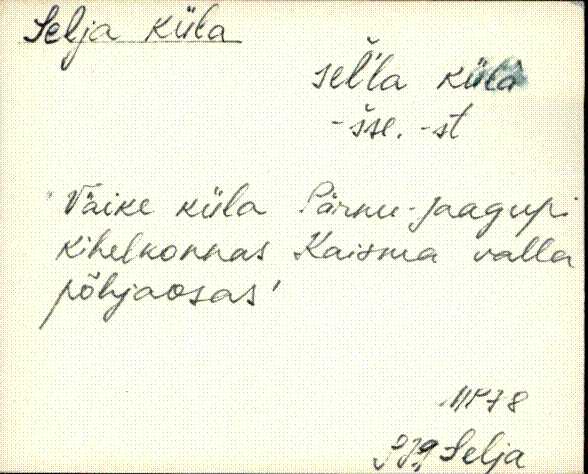 Selja küla
sel'l'a küla
-šse, -st
Väike küla Pärnu-Jaagupi
kihelkonnas Kaisma valla
põhjaosas'
PJg Selja